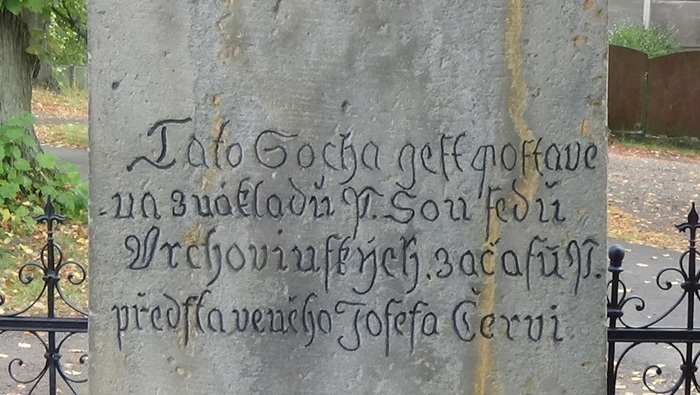 Tato Socha gest postave
-na z nákladů P. Sousedů
Vrchovinských, za časů P.
představeného Josefa Červi